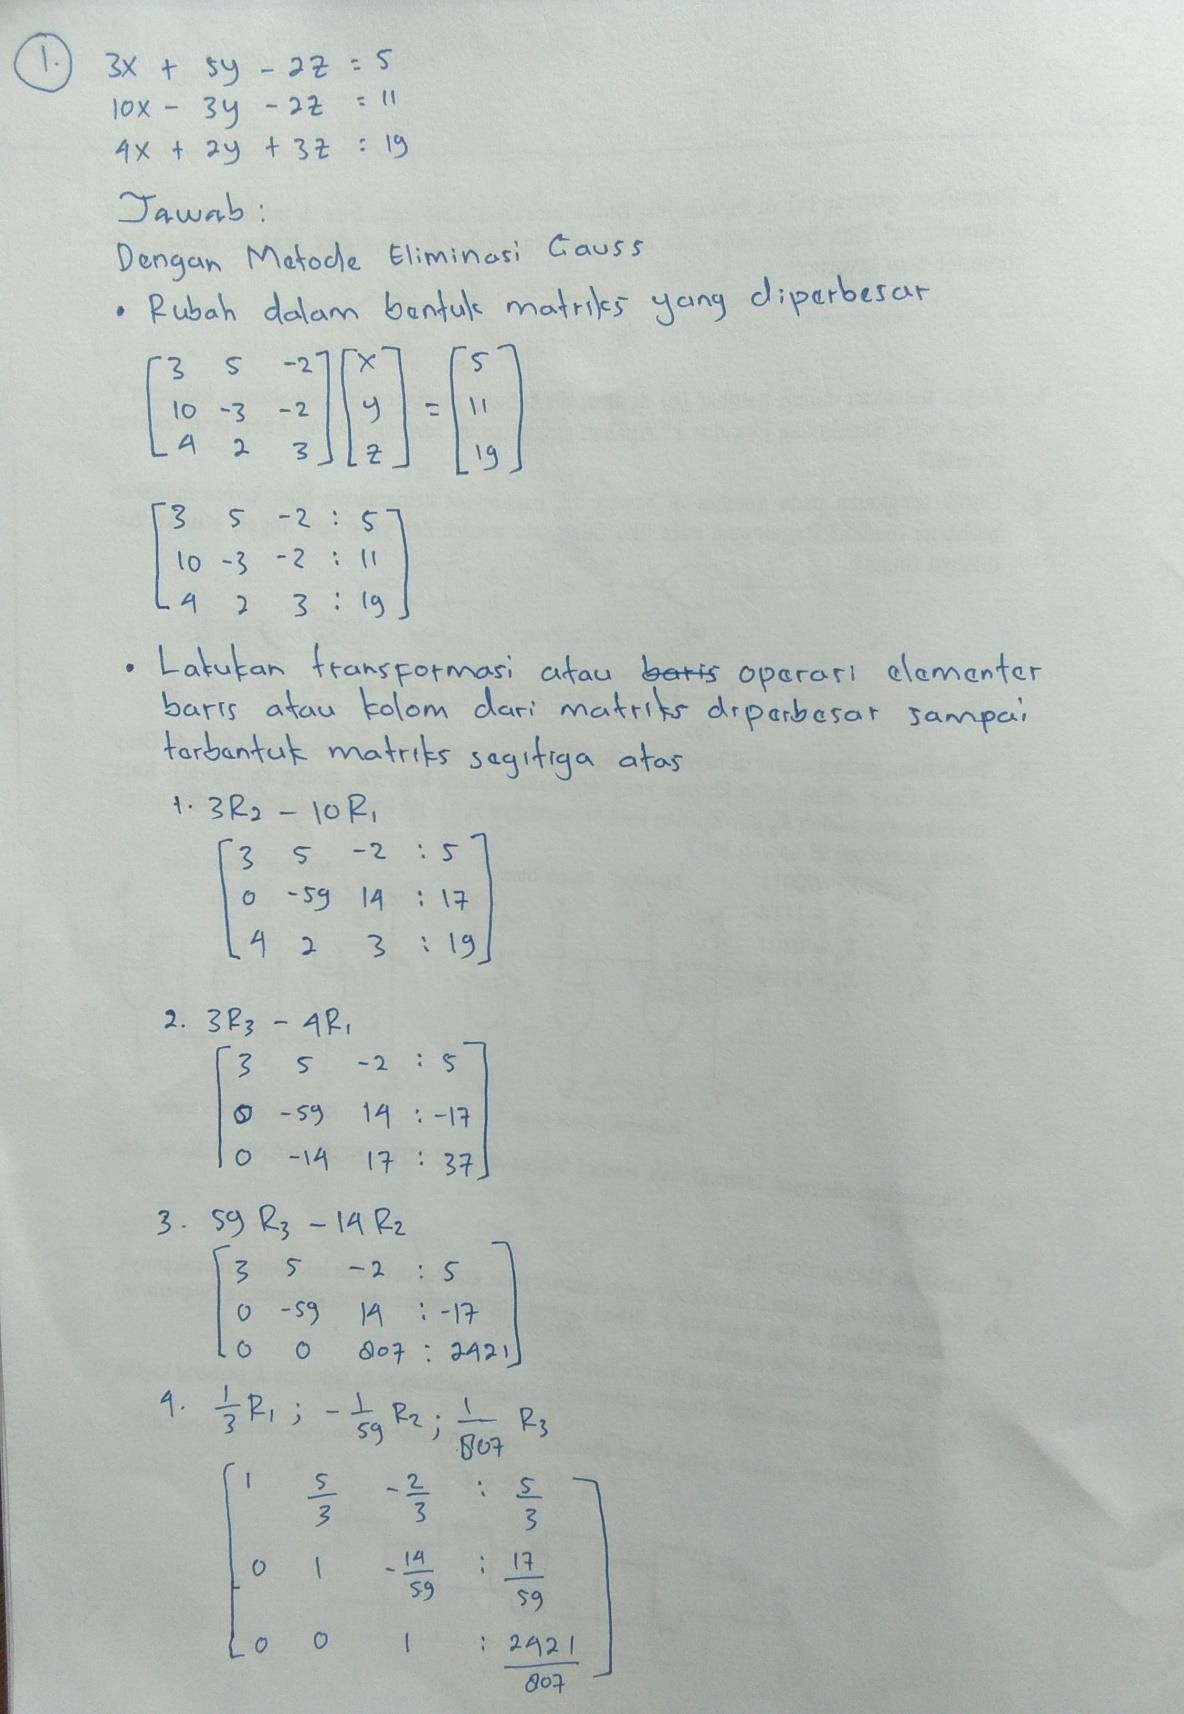 1.
3x + 5y - 2z = 5
10x - 3y - 2z = 11
4x + 2y + 3z = 19
Jawab :
Dengan Metode Eliminasi Gauss
• Rubah dalam bentuk matriks yang diperbesar
[3 5 -2] [x] = [5]
[10 -3 -2] [y] = [11]
[4 2 3] [z] = [19]
[3 5 -2 : 5]
[10 -3 -2 : 11]
[4 2 3 : 19]
• Lakukan transformasi atau baris operasi elementer
baris atau kolom dari matriks diperbesar sampai
terbentuk matriks segitiga atas
1. 3R₂ - 10R₁
[3 5 -2 : 5]
[0 -59 14 : 17]
[4 2 3 : 19]
2. 3R₃ - 4R₁
[3 5 -2 : 5]
[0 -59 14 : -17]
[0 -14 17 : 37]
3. 59 R₃ - 14 R₂
[3 5 -2 : 5]
[0 -59 14 : -17]
[0 0 807 : 2421]
4. 1/3 R₁ ; - 1/59 R₂ ; 1/807 R₃
[1 5/3 -2/3 : 5/3]
[0 1 -14/59 : 17/59]
[0 0 1 : 2421/807]